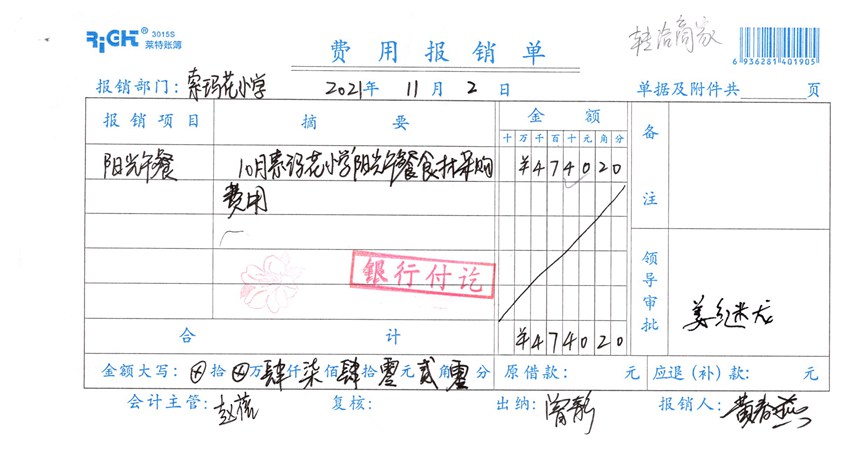 RiGHT® 3015S
莱特账簿
费用报销单
转洽商家
6 936281 401905
报销部门：索玛花小学 2021年 11月 2日 单据及附件共 页
报销项目 摘要 金额 备注
十万千百十元角分
阳光午餐 10月索玛花小学阳光午餐食材采购 ¥474020
费用
银行付讫
领导审批 姜纪米龙
合计 ¥474020
金额大写：⊗拾⊗万肆仟柒佰肆拾零元贰角零分 原借款： 元 应退（补）款： 元
会计主管： 复核： 出纳：曾静 报销人：黄春燕